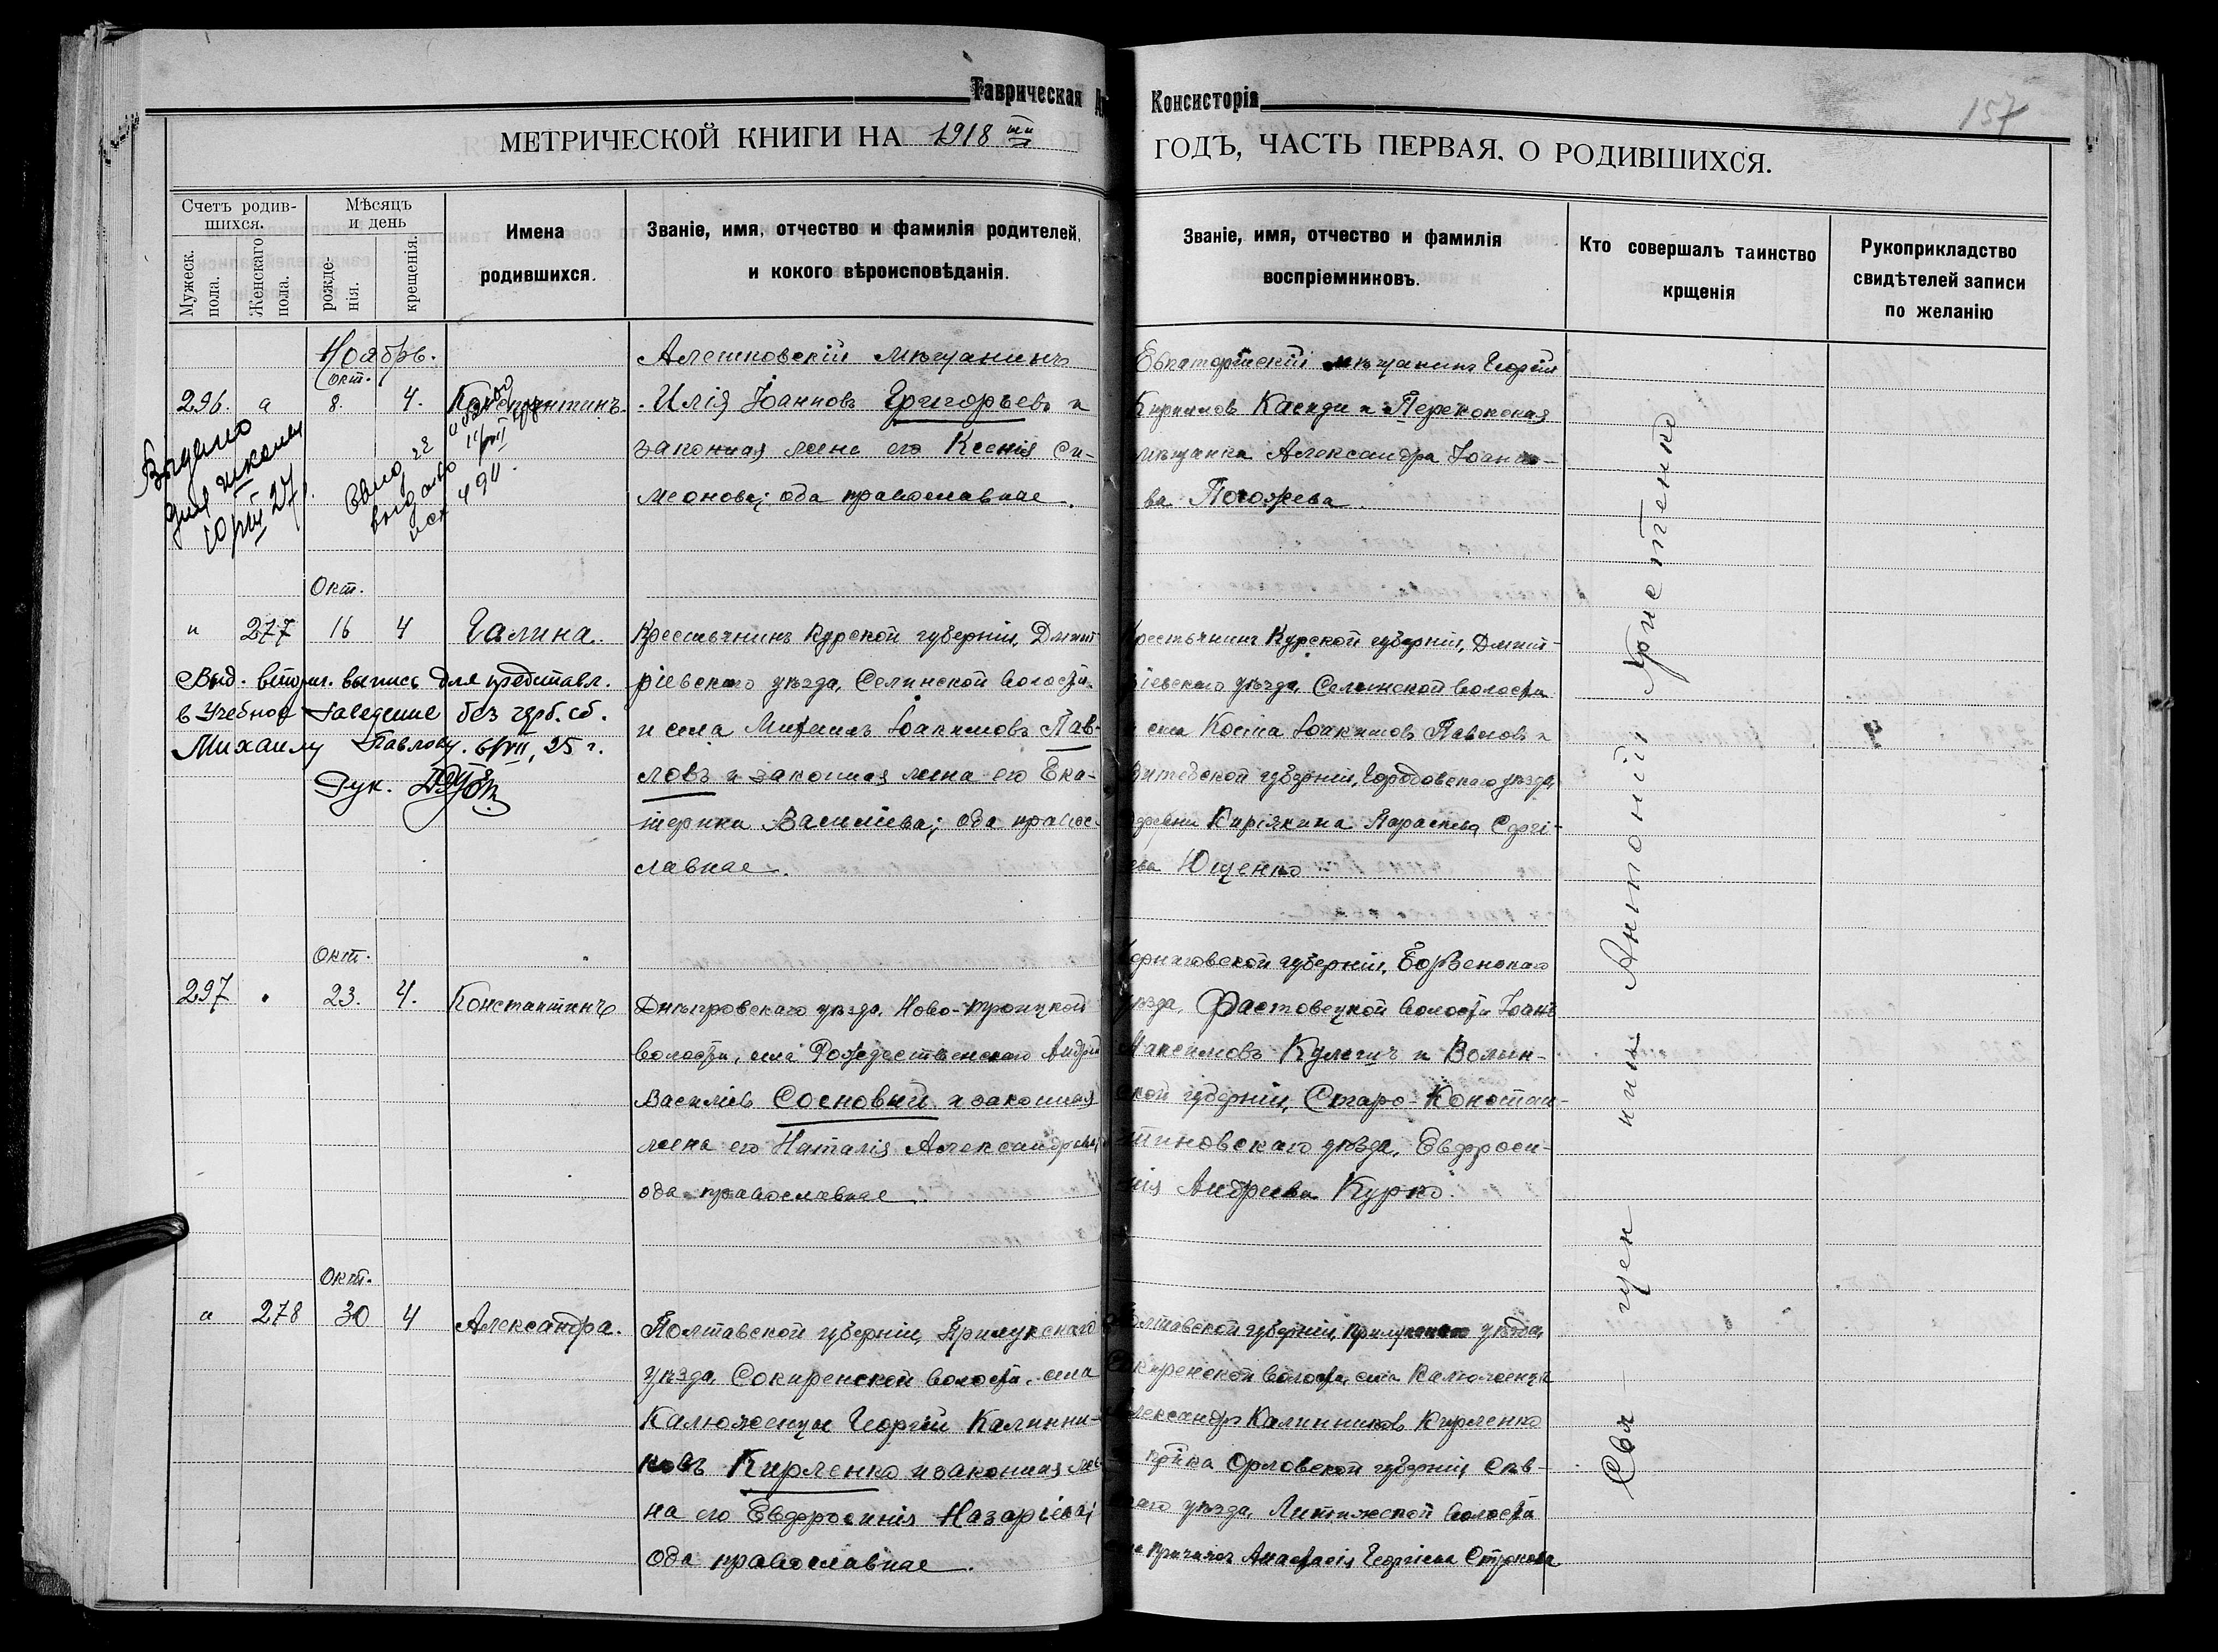 Таврическая
Консисторія
157
МЕТРИЧЕСКОЙ КНИГИ НА 1918 ый
ГОДЪ, ЧАСТЬ ПЕРВАЯ, О РОДИВШИХСЯ.
Счетъ родив-
шихся.
Мужеск.
пола.
Женскаго
пола.
Мѣсяцъ
и день
рожде-
нія.
крещенія.
Имена
родившихся.
Званіе, имя, отчество и фамилія родителей,
и кокого вѣроисповѣданія.
Званіе, имя, отчество и фамилія
воспріемниковъ.
Кто совершалъ таинство
крщенія
Рукоприкладство
свидѣтелей записи
по желанію
Ноябрь.
Окт.
296. 8. 4. Константинъ.
Алешковскій мѣщанинъ
Илія Іоанновъ Григорьевъ и
законная жена его Ксенія Си-
меонова; оба православные.
Евпаторійскій мѣщанинъ Георгій
Кириллов и Перекопская
мѣщанка Александра Іоанно-
ва Погожева.
Выдано
для школы
10/VIII 27
Окт.
277 16 4 Галина.
Выд. вторич. выпись для представл.
в Учебное Заведение без герб. сб.
Михаилу Павлову. 25 г.
Рук.
Крестьянинъ Курской губерніи, Дмит-
ріевскаго уѣзда, Селинской волости
и села Михаилъ Іоакимовъ Пав-
ловъ и законная жена его Ека-
терина Василіева; оба правос-
лавные.
Крестьянинъ Курской губерніи, Дмит-
ріевскаго уѣзда, Селинской волости
и села Косма Іоакимовъ Павловъ и
Витебской губерніи, Городокскаго уѣзда,
деревни Параскева Сергі-
ева Ющенко
Окт.
297 23. 4. Константинъ
Днѣпровскаго уѣзда, Ново-Троицкой
волости, села Рождественскаго Андрей
Василіевъ Сосновый и законная
жена его Наталія Александрова;
оба православные.
Черниговской губерніи, Борзенскаго
уѣзда, Фастовецкой волости Іоаннъ
Максимовъ и Волын-
ской губерніи, Старо-Констан-
тиновскаго уѣзда, Евфроси-
нія Андреева Курко.
Окт.
278 30 4 Александра.
Полтавской губерніи, Прилукскаго
уѣзда, Сокиренской волости, села
Калюженцы Георгій Калинни-
ковъ Кирленко и законная же-
на его Евфросинія Назаріева;
оба православные.
Полтавской губерніи, Прилукскаго уѣзда,
Сокиренской волости, села Калюженцы
Александръ Калинниковъ Кирленко
Орловской губерніи, Сѣв-
скаго уѣзда, Литижской волости
Анастасія Георгіева
Свя-щен никъ Антоній Христенко